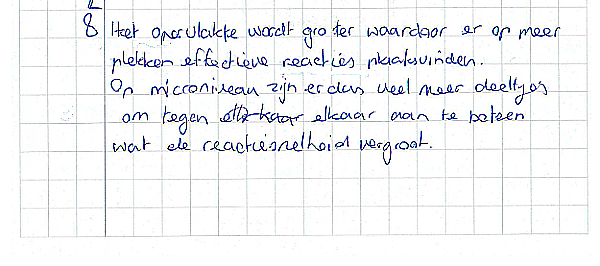 8 Het oppervlakte wordt groter waardoor er op meer
plekken effectieve reacties plaatsvinden.
Op microniveau zijn er dus veel meer deeltjes
om tegen elkaar aan te botsen
wat de reactiesnelheid vergroot.